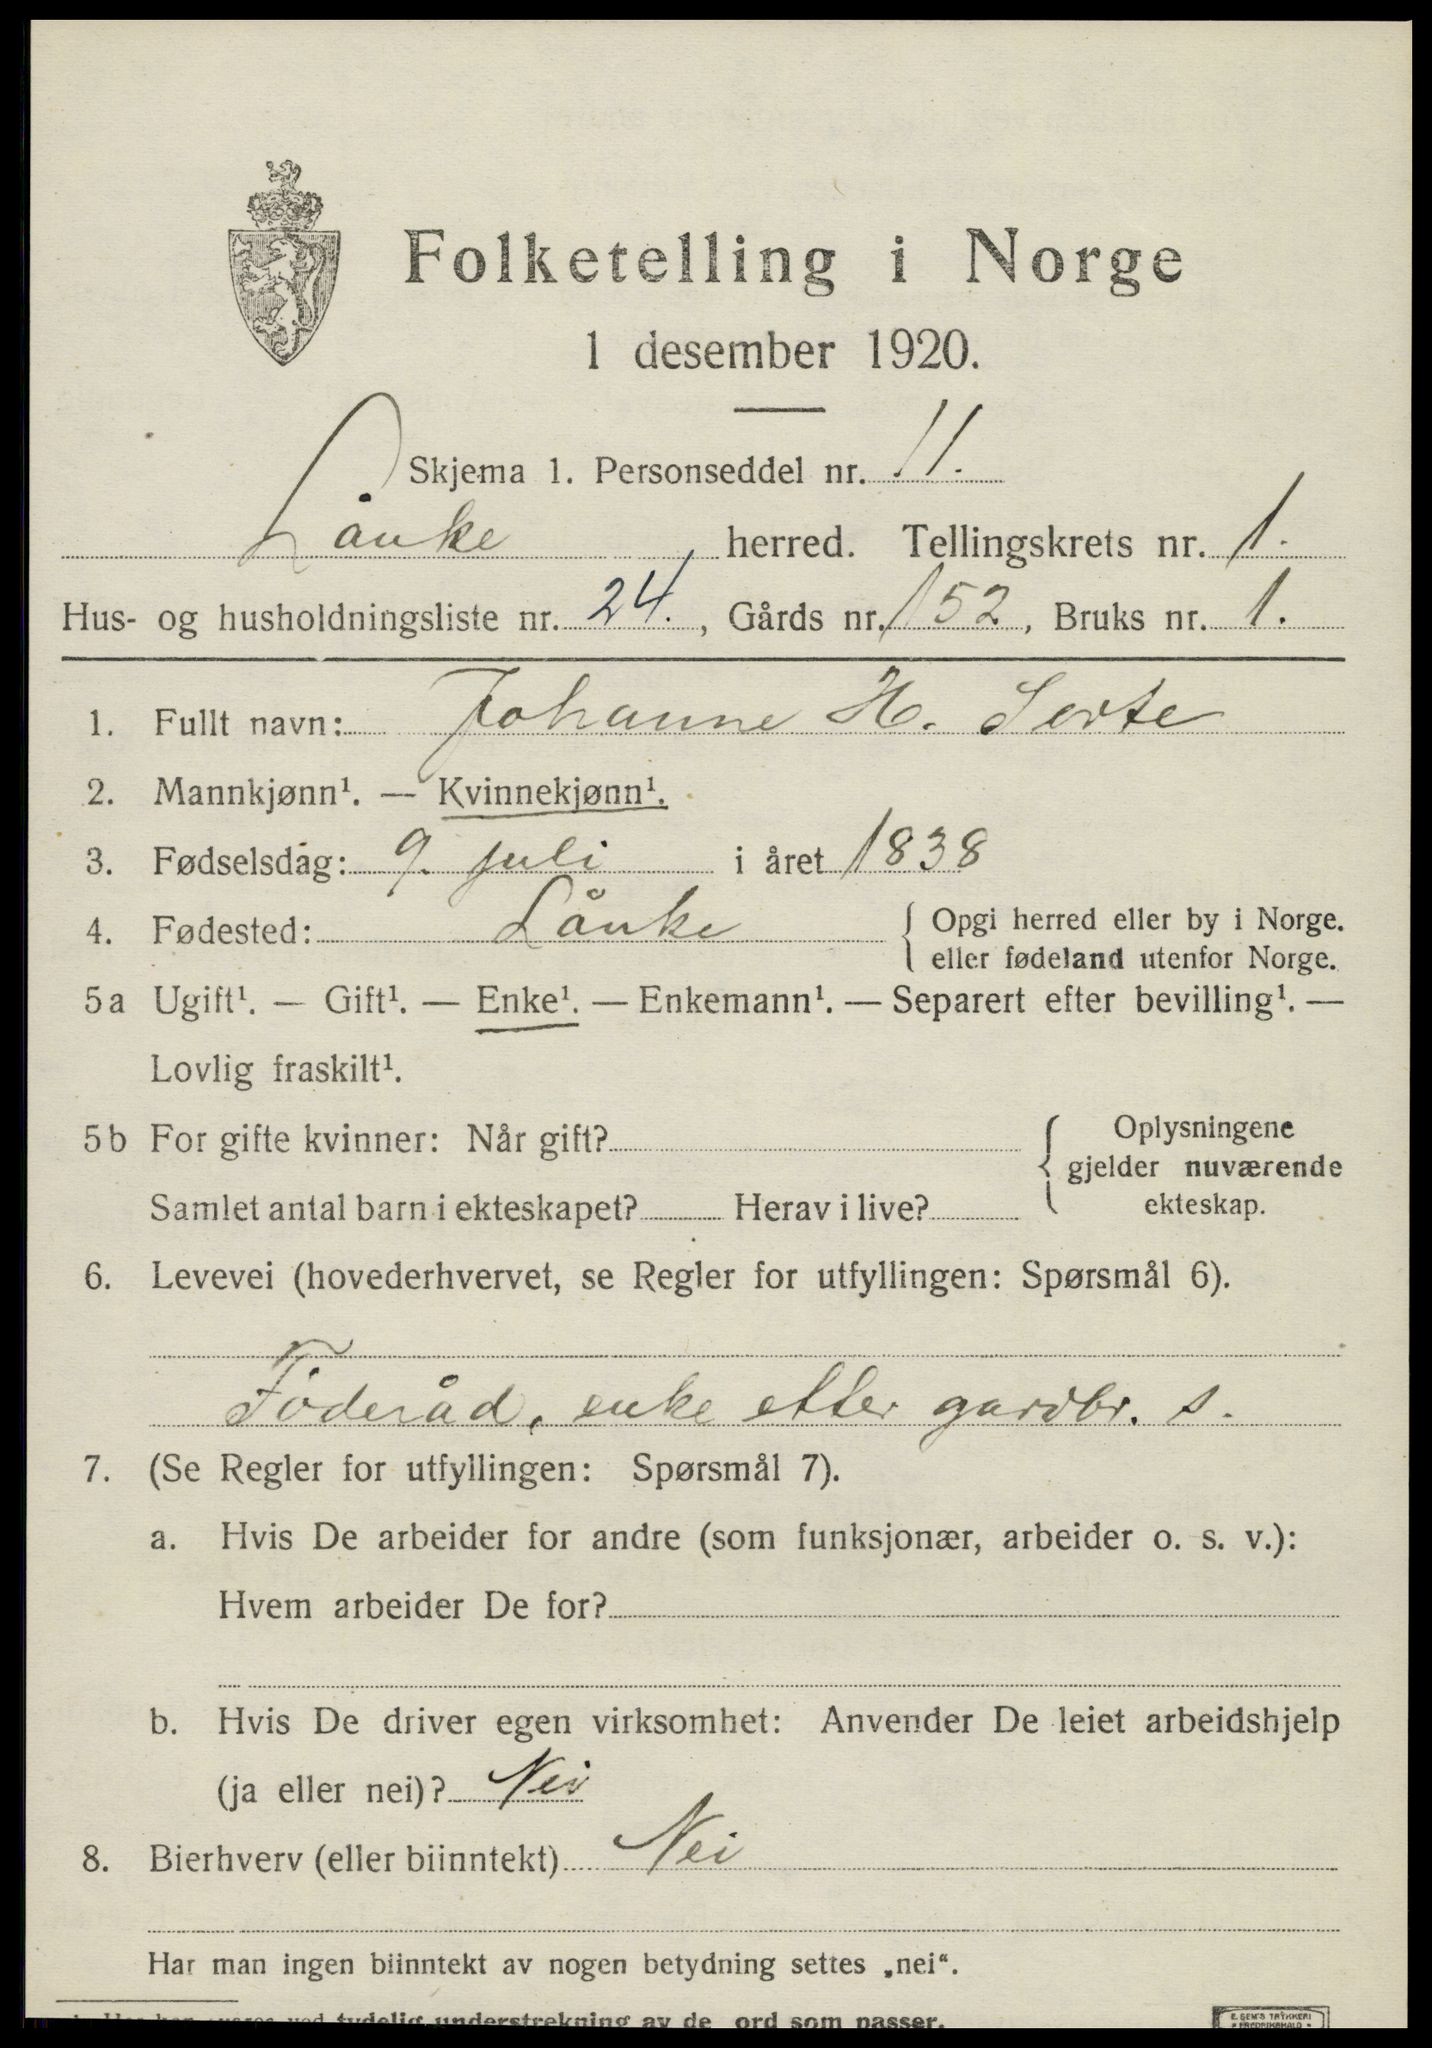 Folketelling i Norge
1 desember 1920.
Skjema 1. Personseddel nr. 11.
Lånke herred. Tellingskrets nr. 1.
Hus- og husholdningsliste nr. 24., Gårds nr. 152, Bruks nr. 1.
1. Fullt navn: Johanne H. Serte
2. Mannkjønn¹. — Kvinnekjønn¹.
3. Fødselsdag: 9. juli i året 1838
4. Fødested: Lånke { Opgi herred eller by i Norge.
eller fødeland utenfor Norge.
5a Ugift¹. — Gift¹. — Enke¹. — Enkemann¹. — Separert efter bevilling¹. —
Lovlig fraskilt¹.
5b For gifte kvinner: Når gift?
Samlet antal barn i ekteskapet? Herav i live?
{ Oplysningene
gjelder nuværende
ekteskap.
6. Levevei (hovederhvervet, se Regler for utfyllingen: Spørsmål 6).
Föderåd, enke etter gardbr. s.
7. (Se Regler for utfyllingen: Spørsmål 7).
a. Hvis De arbeider for andre (som funksjonær, arbeider o. s. v.):
Hvem arbeider De for?
b. Hvis De driver egen virksomhet: Anvender De leiet arbeidshjelp
(ja eller nei)? Nei
8. Bierhverv (eller biinntekt) Nei
Har man ingen biinntekt av nogen betydning settes „nei“.
tydelig understrekning av de ord som passer.
E. SEM'S TRYKKERI
FREDRIKSHALD